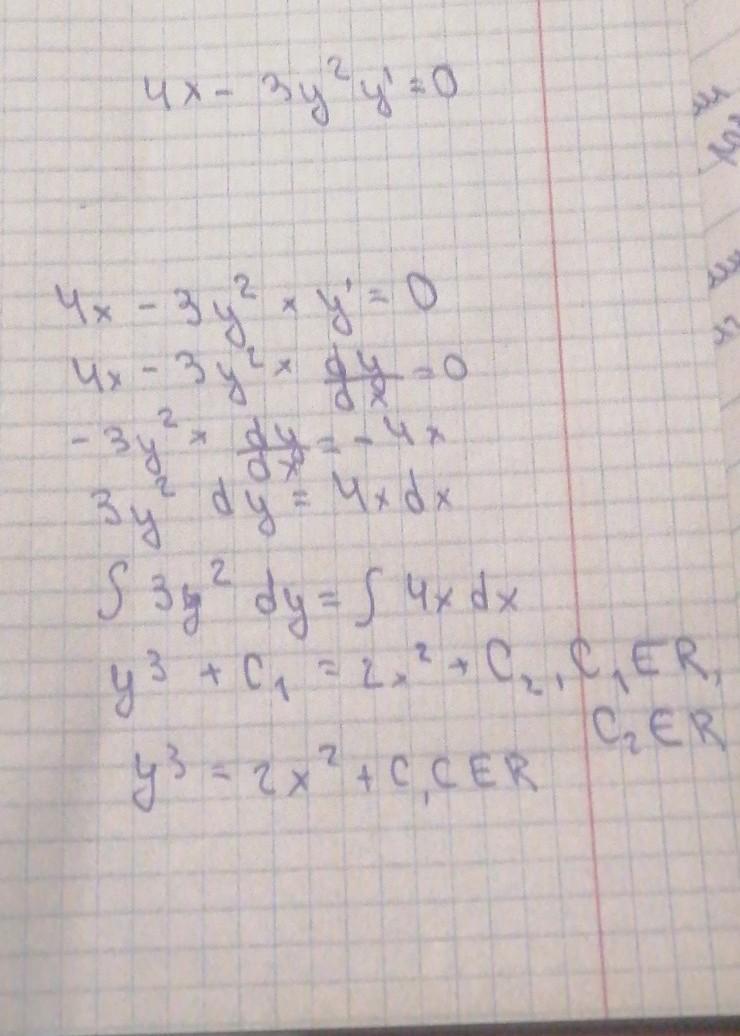 4x - 3y² y' = 0
4x - 3y² × y' = 0
4x - 3y² × dy/dx = 0
-3y² × dy/dx = -4x
3y² dy = 4x dx
∫ 3y² dy = ∫ 4x dx
y³ + C₁ = 2x² + C₂, C₁ ∈ R,
C₂ ∈ R
y³ = 2x² + C, C ∈ R